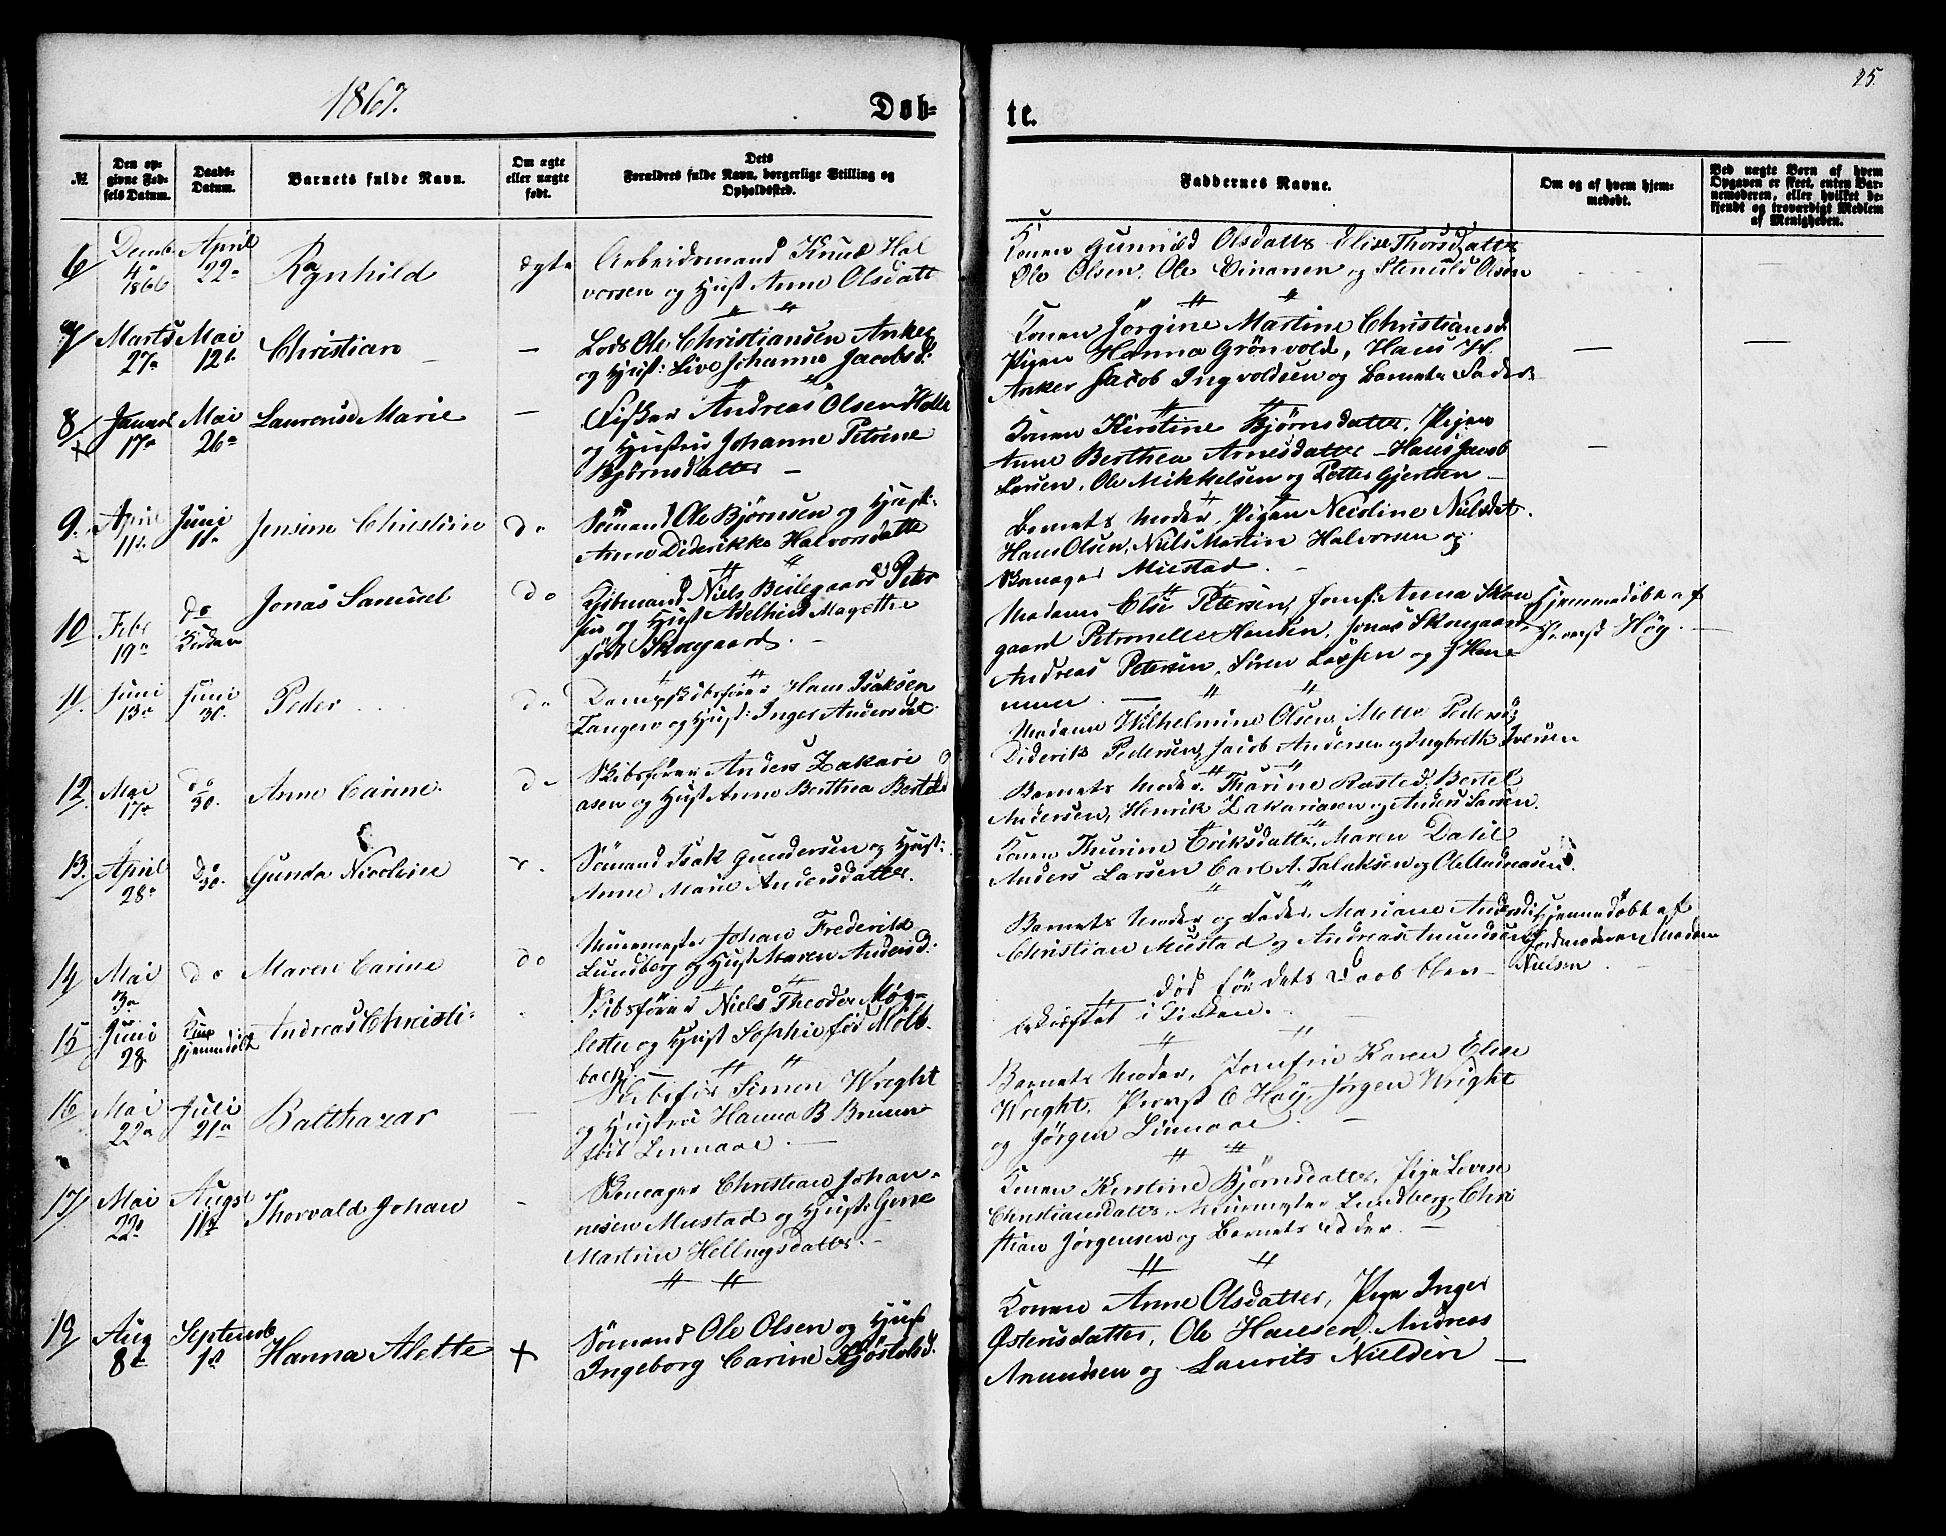 1867.
Døb-
te.
25.
№
Den op-
givne Fød-
sels Datum.
Daabs-
Datum.
Barnets fulde Navn.
Om ægte
eller uægte
født.
Dets
Forældres fulde Navn, borgerlige Stilling og
Opholdssted.
Faddernes Navne.
Om og af hvem hjem-
medøbt.
Ved uægte Børn af hvem
Opgaven er skeet, enten Bar-
nemoderen, eller hvilket be-
kjendt og troværdigt Medlem
af Menigheden.
6
Decmb
4de
1866
April
22de
Ragnhild
ægte
Arbeidsmand Knud Hal
vorsen og Hust Anne Olsdatt
Konen Gunnild Olsdattr Elise Thorsdattr
Ole Olsen, Ole Einarsen og Stenuld Olsen
7
Marts
27de
Mai
12te
Christian
—
Lods Ole Christiansen Anker
og Hust: Live Johanne Jacobsd:
Konen Jørgine Martine Christiansd:
Pigen Hanna Grönvold, Hans H.
Anker Jacob Ingvoldsen og Barnets Fader
8
Januar
17de
Mai
26de
Laurense Marie
—
Fisker Andreas Olsen Holte
og Hustru Johanne Petrine
Bjørnsdatter —
Konen Kirstine Bjørnsdatter, Pigen
Anne Berthea Arnesdatter — Hans Jacob
Larsen, Ole Mikkelsen og Petter Gjertsen —
9.
April
11te
Juni
10de
Jensine Christine
do
Sömand Ole Bjørnsen og Hust:
Anne Diderikke Halvorsdatter
Barnets Moder, Pigen Nicoline Nielsdat.
Hans Olsen, Niels Martin Halvorsen og
Skomager Mustad.
10
Febr
19de
do
Kirken
Jonas Samuel
do
Kjøbmand Niels Beilegaard Peter
sen og Hust Adelheid Magrethe
født Skougaard.
Madame Else Petersen, Jomf: Anna Skou
gaard Petronelle Hansen, Jonas Skougaard,
Andreas Petersen, Søren Lassen og J Ham
mer
Hjemmedøbt af
Provst Høg. —
11.
Juni
13de
Juni
30.
Peder
do
Dampskibsfører Hans Isaksen
Tangen og Hust: Inger Andersdat
Madame Wilhelmine Olsen, Mette Peders:
Diderik Pedersen, Jacob Andersen og Ingbreth Iversen
12.
Mai
17de
do
30.
Anne Carine.
do
Skibsfører Anders Zakari
asen og Hust Anne Berthea Bertelsd
Barnets Moder, Thorine Rasted, Bertel
Andersen, Henrik Zakariasen og Anders Larsen.
13.
April
28de
do
30.
Gunda Nicoline
Sömand Isak Gundersen og Hust:
Anne Marie Andersdatter.
Konen Thurine Eriksdatter, Maren Dahl
Anders Larsen Carl A. Falaksen og Ole Andreasen.
14
Mai
3de
do
Maren Carine
do
Muurmester Johan Frederik
Lundberg og Hust Maren Andersd:
Barnets Moder og Fader, Mariane Andersd:
Christian Mustad og Andreas Amundsen
Hjemmedøbt af
Jordmoderen Madam
Nielsen
15
Juni
28
hjemmedøbt
Andreas Christi-
Skibsfører Niels Theodor Møg-
lestu og Hust Sophie fød Møll-
bach.
død før dets Daab blev
bekræftet i Kirken. —
16
Mai
22de
Juli
21de
Balthazar
—
Skibsfør Simon Wright
og Hustru Hanna B Bruun
født Linnaae. —
Barnets Moder, Jomfru Karen Elise
Wright, Provst C Høg, Jørgen Wright
og Jørgen Linnaae.
17
Mai
22de
Augst
11te
Thorvald Johan
—
Skomager Christian Johan-
nesen Mustad og Hust: Gune
Martine Helliugsdatter. —
Konen Kirstine Bjørnsdatter, Pige Lovise
Christiansdatter, Muurmester Lundberg, Chri
stian Jørgensen og Barnets Fader. —
19
Aug
8de
Septemb
1ste
Hanna Alette
+
Sömand Ole Olsen og Hust
Ingeborg Carine Kjøstelsd:
Konen Anne Olsdatter, Pige Inger
Østensdatter, Ole Hansen, Andreas
Amundsen og Laurits Nielsen —